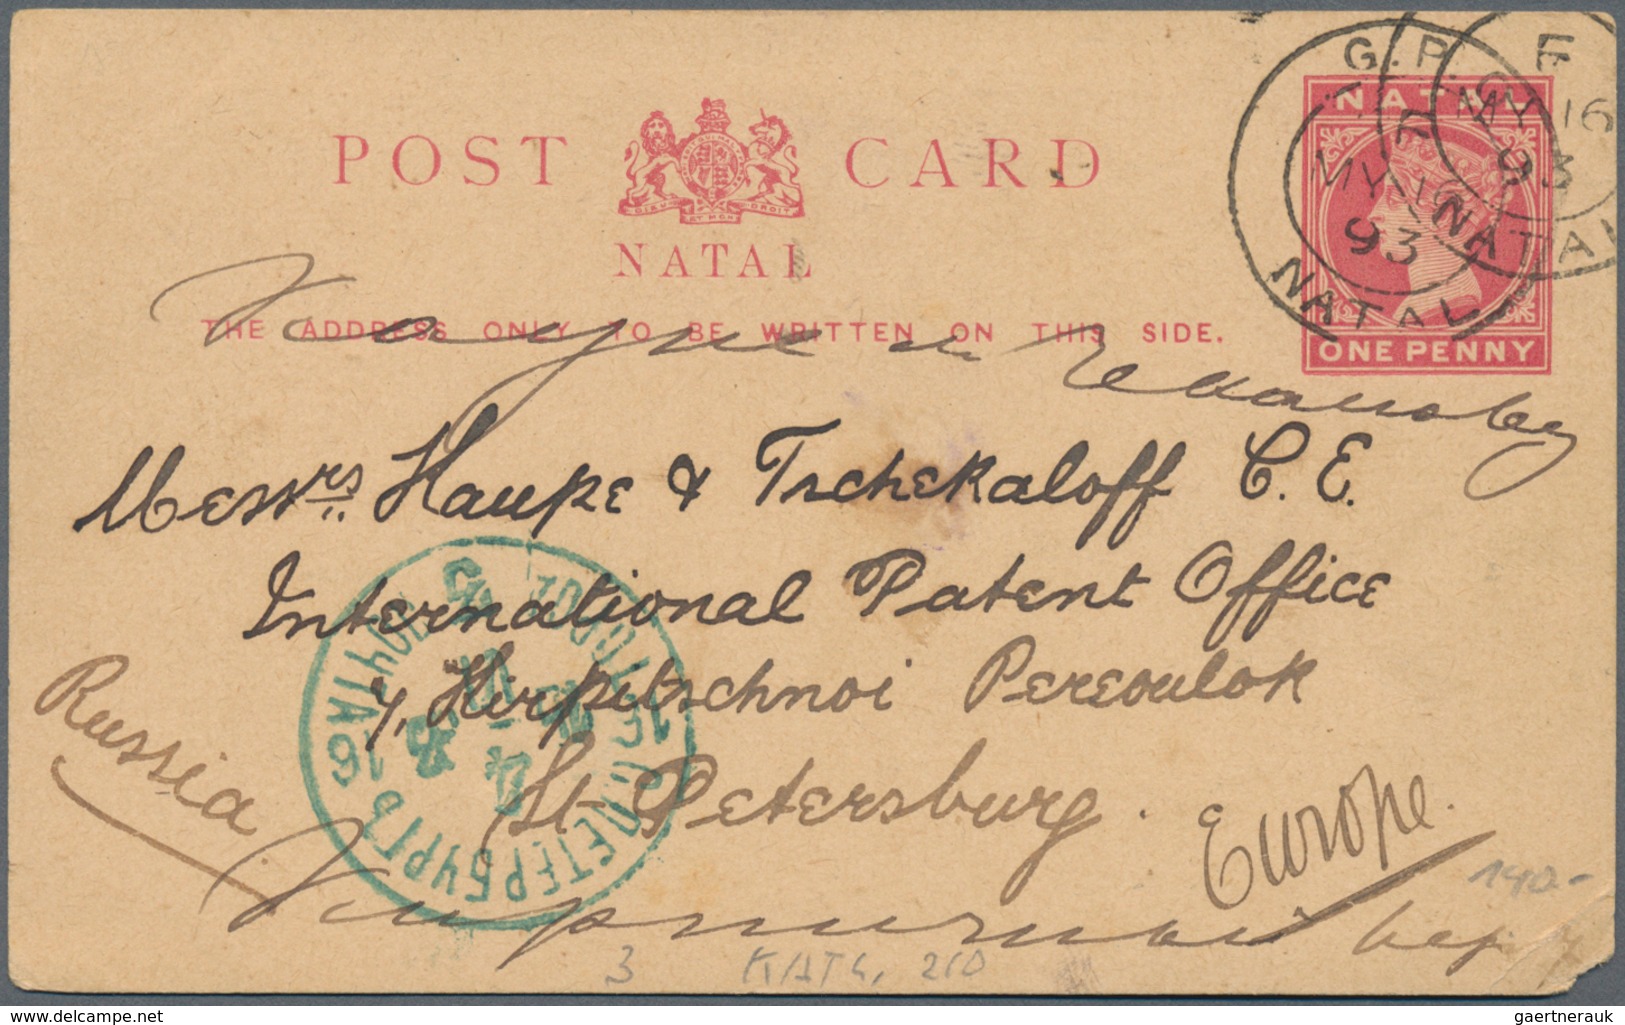 G.P.
F
NATAL
MY 16
93
MY 16
93
NATAL
NATAL
ONE PENNY
POST CARD
DIEU ET MON DROIT
NATAL
THE ADDRESS ONLY TO BE WRITTEN ON THIS SIDE.
Messrs. Haupe & Tschekaloff C. E.
International Patent Office
4, Kirpitschnoi Pereoulok
St Petersburg.
Russia
Europe.
С.ПЕТЕРБУРГЪ
ПОЧТА
140-
3 KATG, 210
www.delcampe.net
gaertnerauk